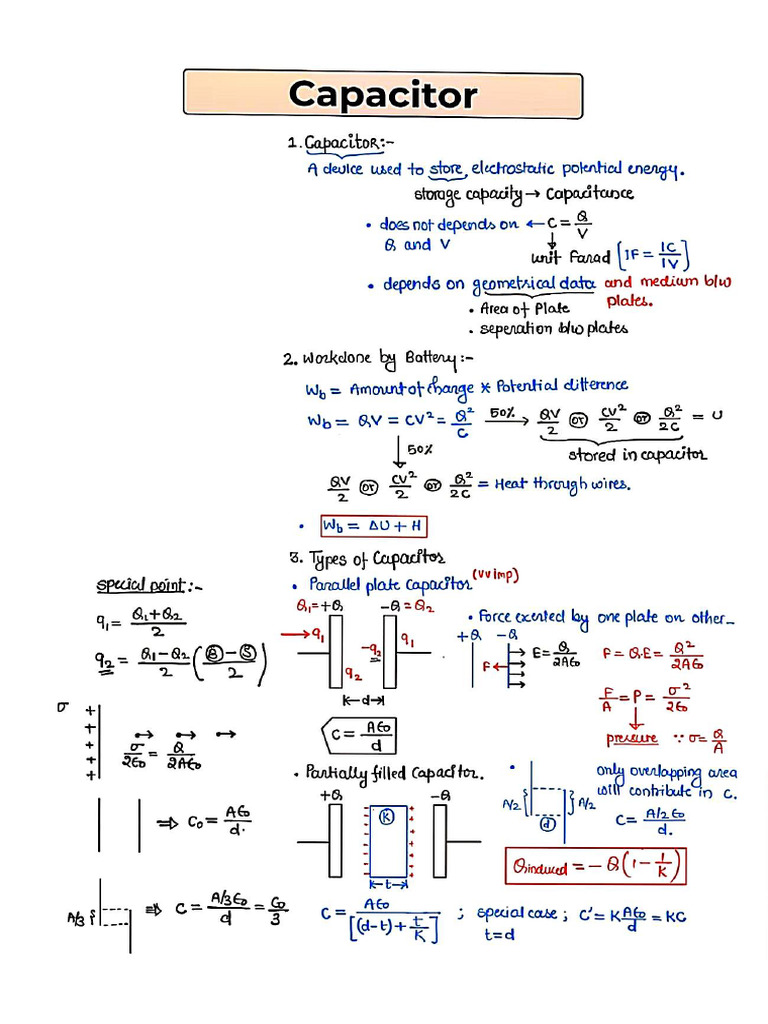 Capacitor
1. Capacitor:-
A device used to store electrostatic potential energy.
storage capacity → Capacitance
• does not depends on ← C = Q/V
Q and V
unit Farad [1F = 1C/1V]
• depends on geometrical data and medium b/w plates.
• Area of Plate
• seperation b/w plates
2. Workdone by Battery:-
W_b = Amount of Charge * Potential difference
W_b = QV = CV² = Q²/C 50% → QV/2 or CV²/2 or Q²/2C = U
stored in capacitor
↓ 50%
QV/2 or CV²/2 or Q²/2C = Heat through wires.
• W_b = ΔU + H
3. Types of Capacitor
• Parallel plate capacitor (vv imp)
special point:-
q₁ = Q₁+Q₂/2
q₂ = Q₁-Q₂/2 (Ⓑ-Ⓢ/2)
Q₁=+Q -Q=Q₂
→ q₁ -q₂ q₁
q₂
d
C = Aε₀/d
• Force exerted by one plate on other_
+Q -Q
F ← E = Q/2Aε₀ F = Q.E = Q²/2Aε₀
F/A = P = σ²/2ε₀
pressure ∵ σ = Q/A
σ + + + + +
σ/2ε₀ = Q/2Aε₀
⇒ C₀ = Aε₀/d.
A/3 ⇒ C = A/3 ε₀/d = C₀/3
• Partially filled Capacitor.
+Q K -Q
t
C = Aε₀/[(d-t)+t/K] ; special case ; C' = K Aε₀/d = KC
t=d
• only overlapping area
will contribute in C.
A/2 A/2
d
C = A/2 ε₀/d.
Q induced = -Q(1 - 1/K)